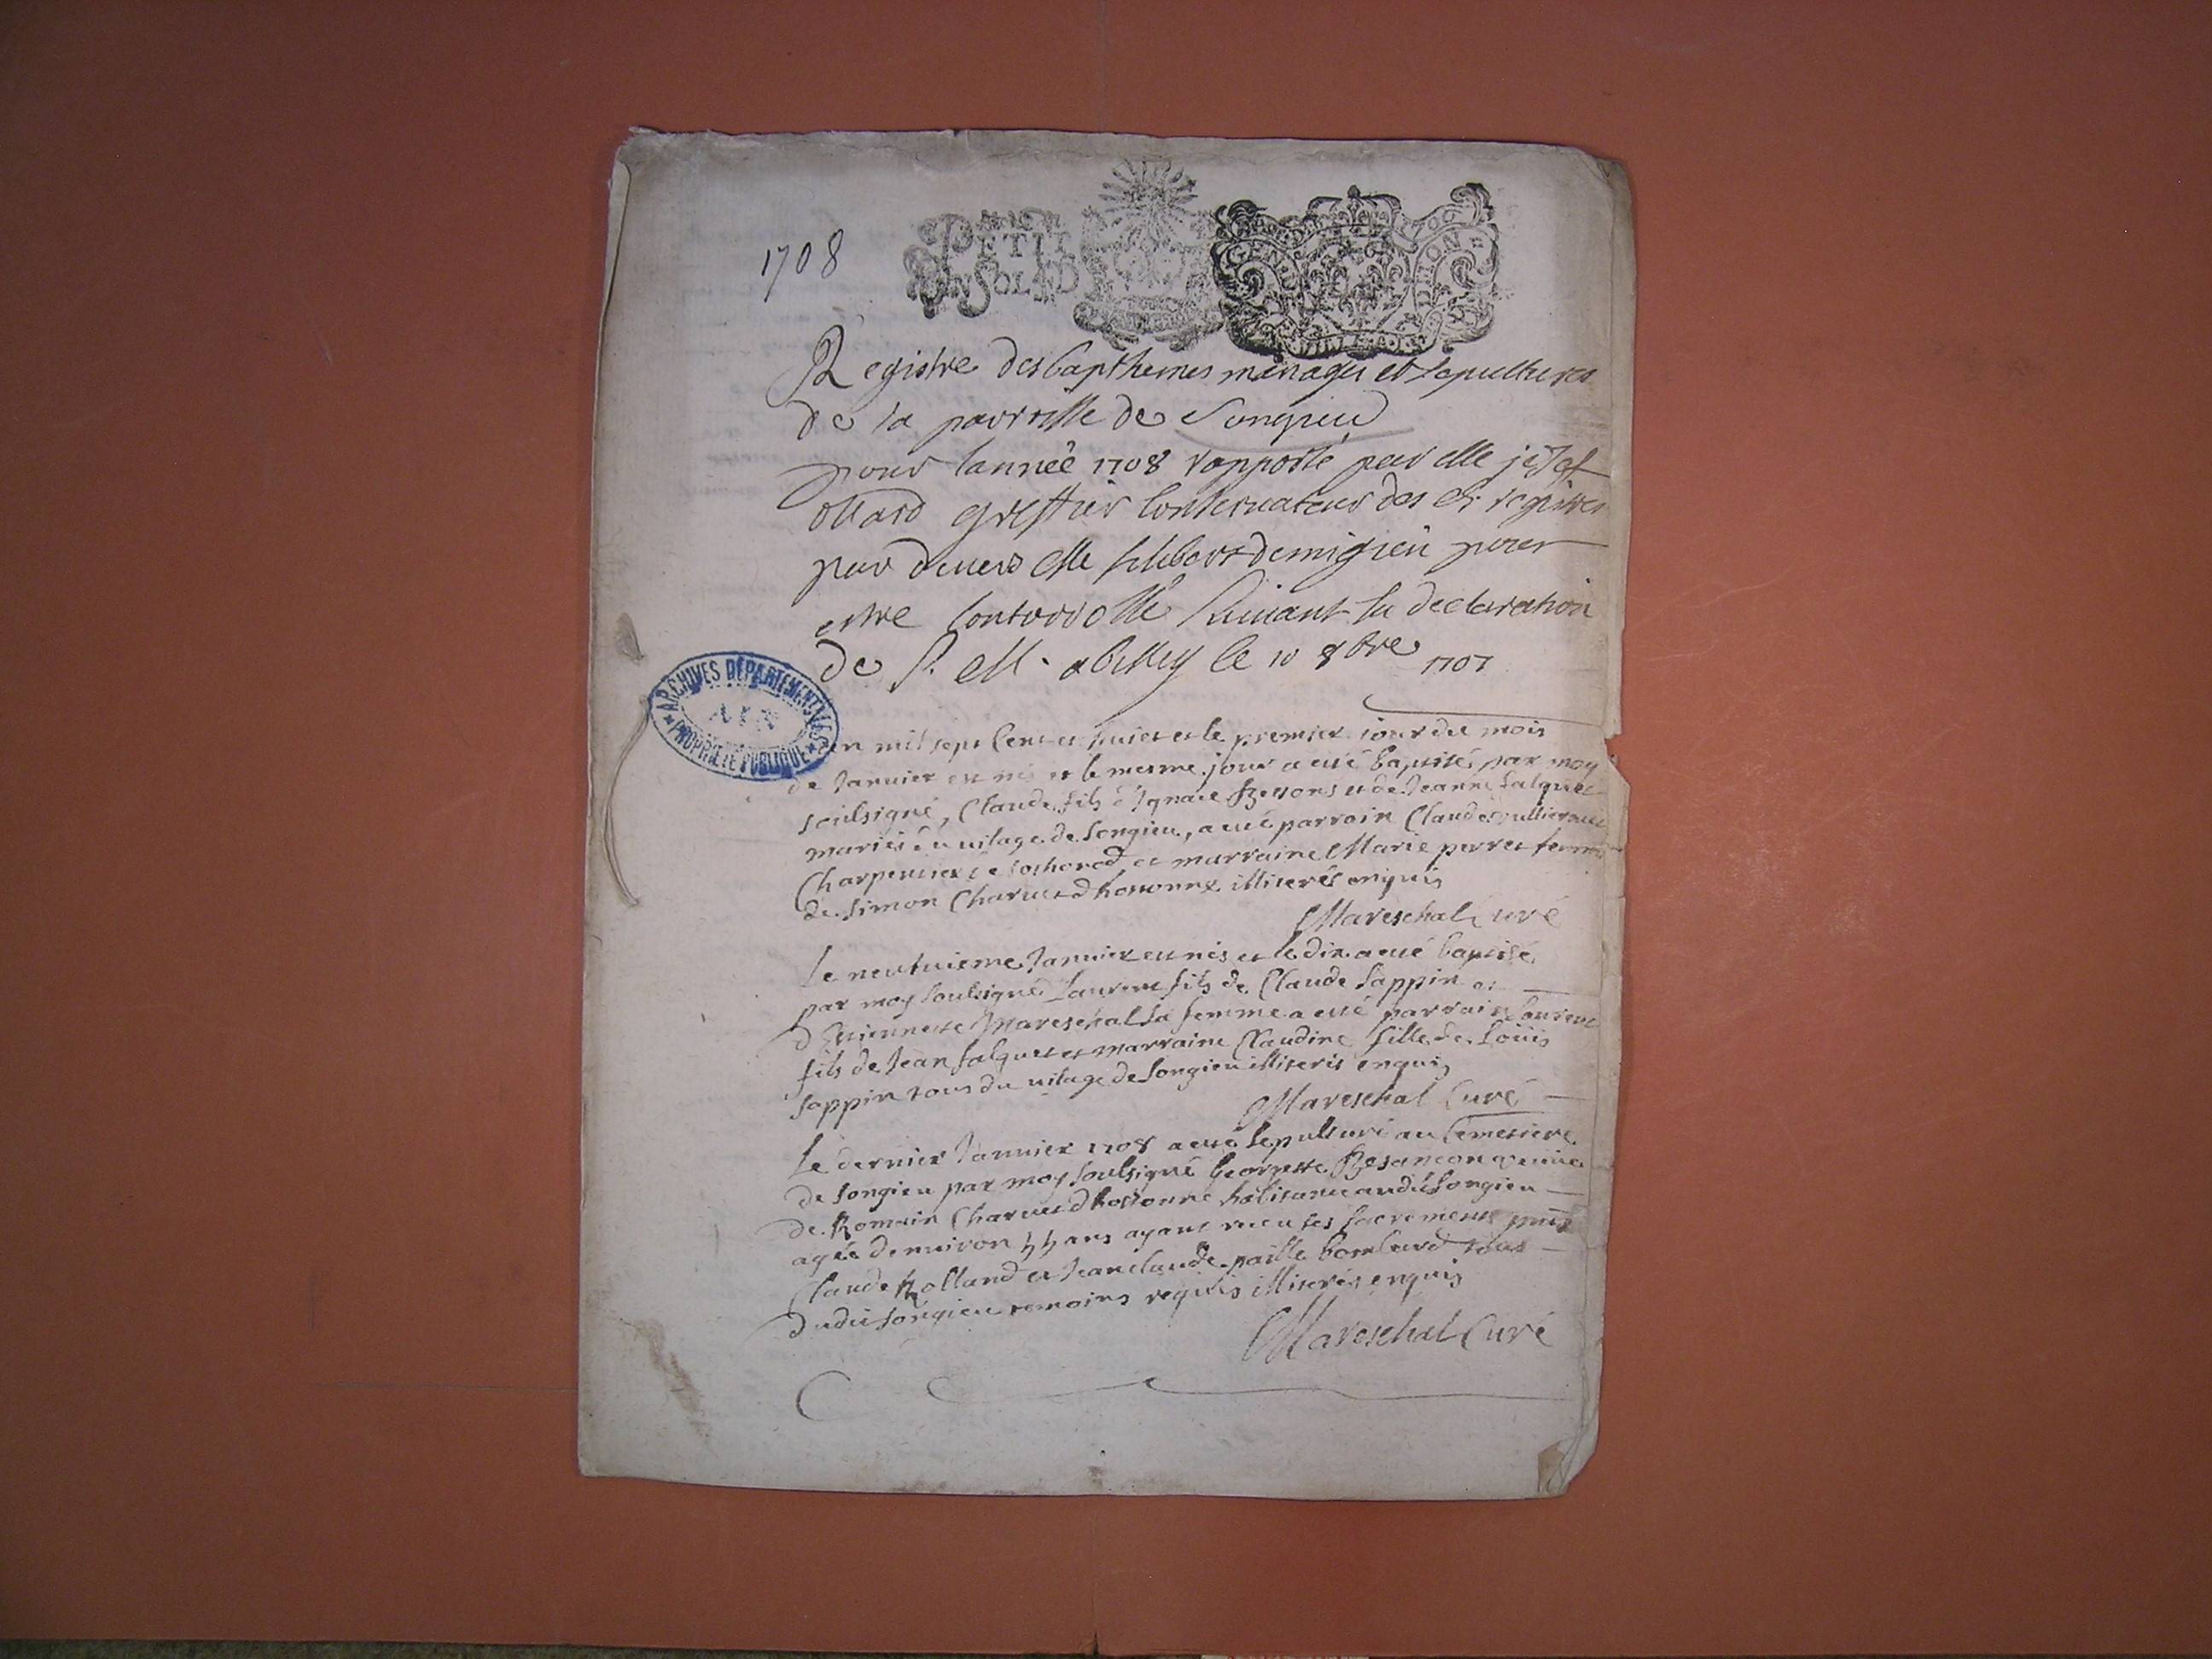 1708
PETIT
UN SOL
GENE
Registre des bapthemes mariages et sepultures
de la parroisse de Songieu
pour lannée 1708 rapporté par Me
greffier Conservateur des registres
par devers Me pour
estre Controrollé suivant la declaration
de S. M. a Belley le 10 8bre 1707
ARCHIVES DÉPARTEMENTALES
AIN
PROPRIÉTÉ PUBLIQUE
mil sept Cent et huict et le premier jour du mois
de Janvier est né et le mesme jour a esté baptisé par moy
soulsigné, Claude fils d'Ignace Bessons et de Jeanne falquet
mariés du vilage de Songieu, a esté parrain Claude
Charpentier de et marraine Marie perret femme
de Simon Charvet d hotonne illiterés enquis
Mareschal Curé
Le neufvieme Janvier est nés et le dix a esté baptisé
par moy soulsigné Laurent fils de Claude Sappin et
d Estiennette Mareschal sa femme a esté parrain Laurent
fils de Jean falquet et marraine Claudine fille de Loüis
Sappin tous du vilage de Songieu illiterés enquis
Mareschal Curé
Le dernier Janvier 1708 a esté sepulturé au Cemetiere
de Songieu par moy soulsigné Georgette Besancon veuve
de Romain Charvet d hotonne habitante audit Songieu
agée denviron 55 ans ayant receu ses sacrements
Claude Rolland et Jean claude paille tous
dudit Songieu temoins requis illiterés enquis
Mareschal Curé